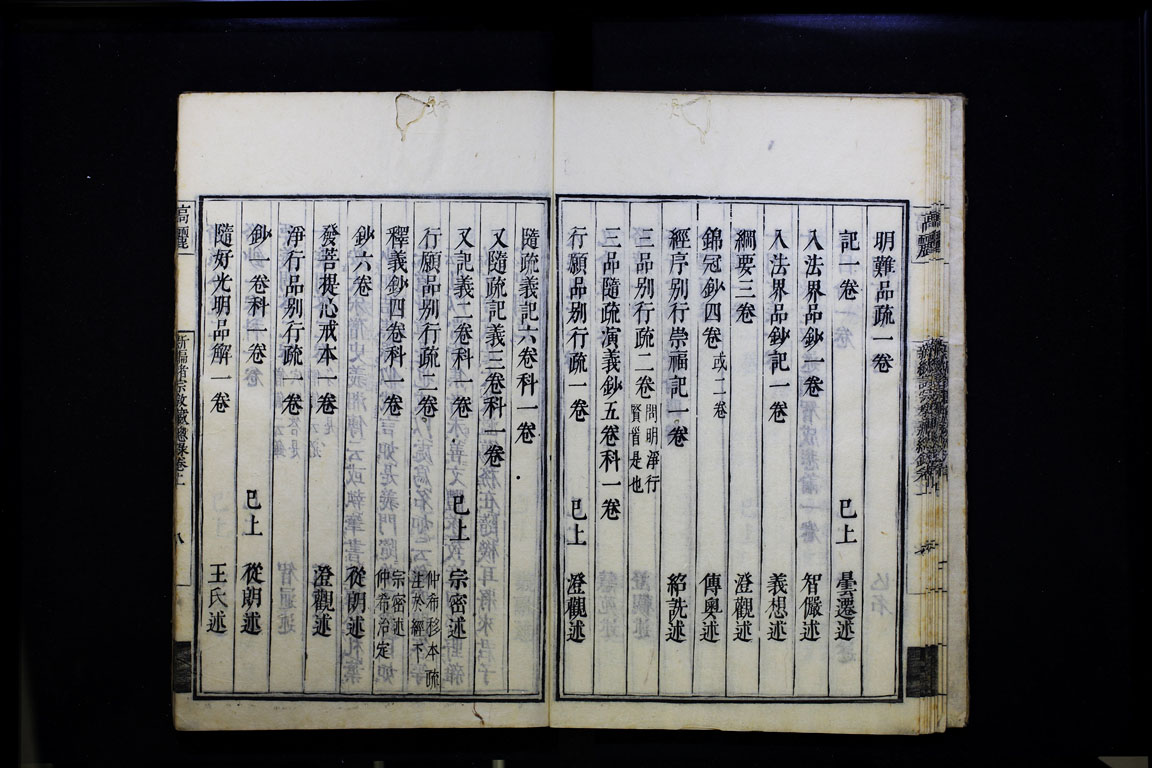 明難品疏一卷
記一卷 已上 曇遷述
入法界品鈔一卷 智儼述
入法界品鈔記一卷 義想述
綱要三卷 澄觀述
錦冠鈔四卷或二卷 傳奧述
經序別行崇福記一卷 紹詵述
三品別行疏二卷問明淨行賢首是也
三品隨疏演義鈔五卷科一卷
行願品別行疏一卷 已上 澄觀述
隨疏義記六卷科一卷
又隨疏記義三卷科一卷
又記義二卷科一卷 已上 宗密述
行願品別行疏二卷 仲希移本疏注於經下
釋義鈔四卷科一卷 宗密述仲希治定
鈔六卷 從朗述
發菩提心戒本一卷 澄觀述
淨行品別行疏一卷
鈔一卷科一卷 已上 從朗述
隨好光明品解一卷 王氏述
高麗
新編諸宗教藏總錄卷上
八